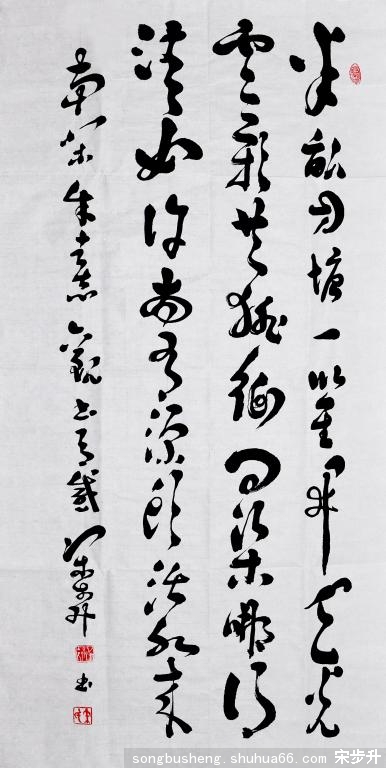 半畝方塘一鑒開天光
雲影共徘徊問渠哪得
清如許為有源頭活水來
南宋朱熹觀書有感 宋步升 書
songbusheng.shuhua66.com 宋步升